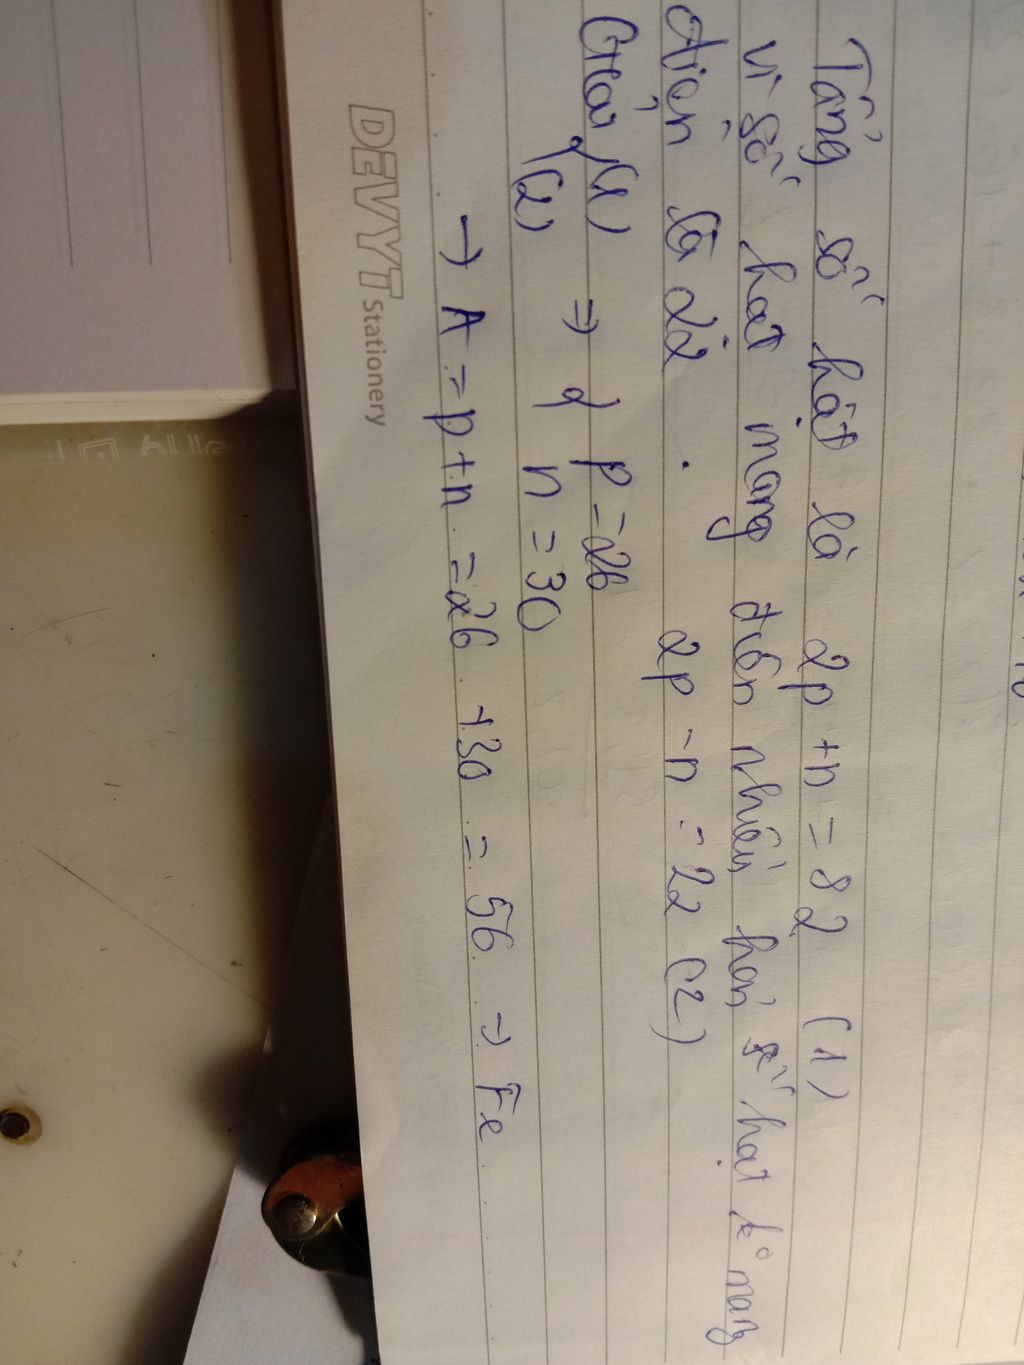 Tổng số hạt là 2p + n = 82 (1)
Vì số hạt mang điện nhiều hơn số hạt k° mang
điện là 22. 2p - n = 22 (2)
Giải { (1) ⇒ { p = 26
(2) n = 30
→ A = p + n = 26 + 30 = 56 → Fe
DEVYT Stationery